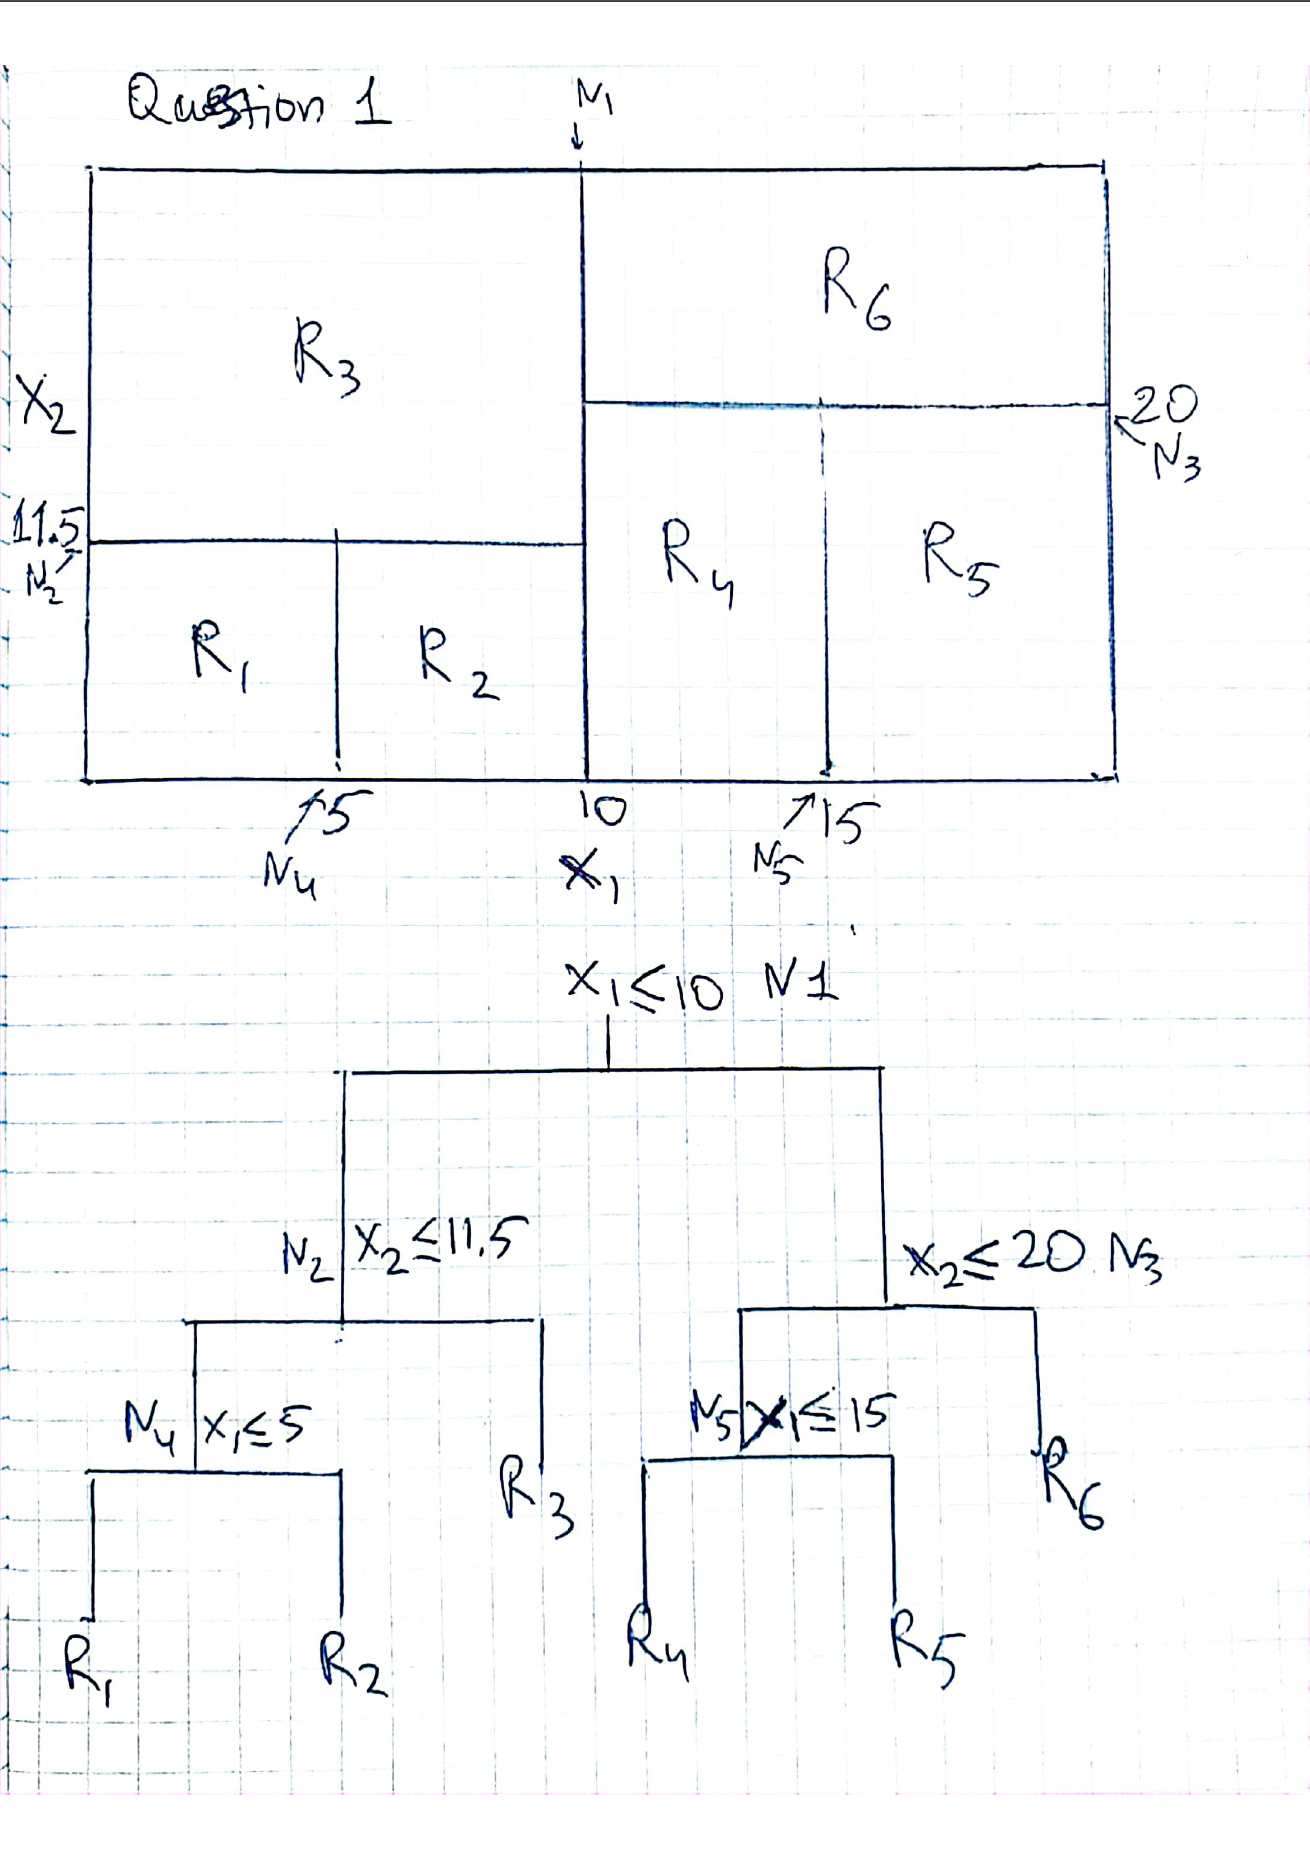 Question 1
N1
↓
R6
R3
X2
20
N3
11.5
N2
R4
R5
R1
R2
5
10
15
N4
X1
N5
X1≤10 N1
N2 X2≤11.5
X2≤20 N3
N4 X1≤5
N5 X1≤15
R3
R6
R1
R2
R4
R5